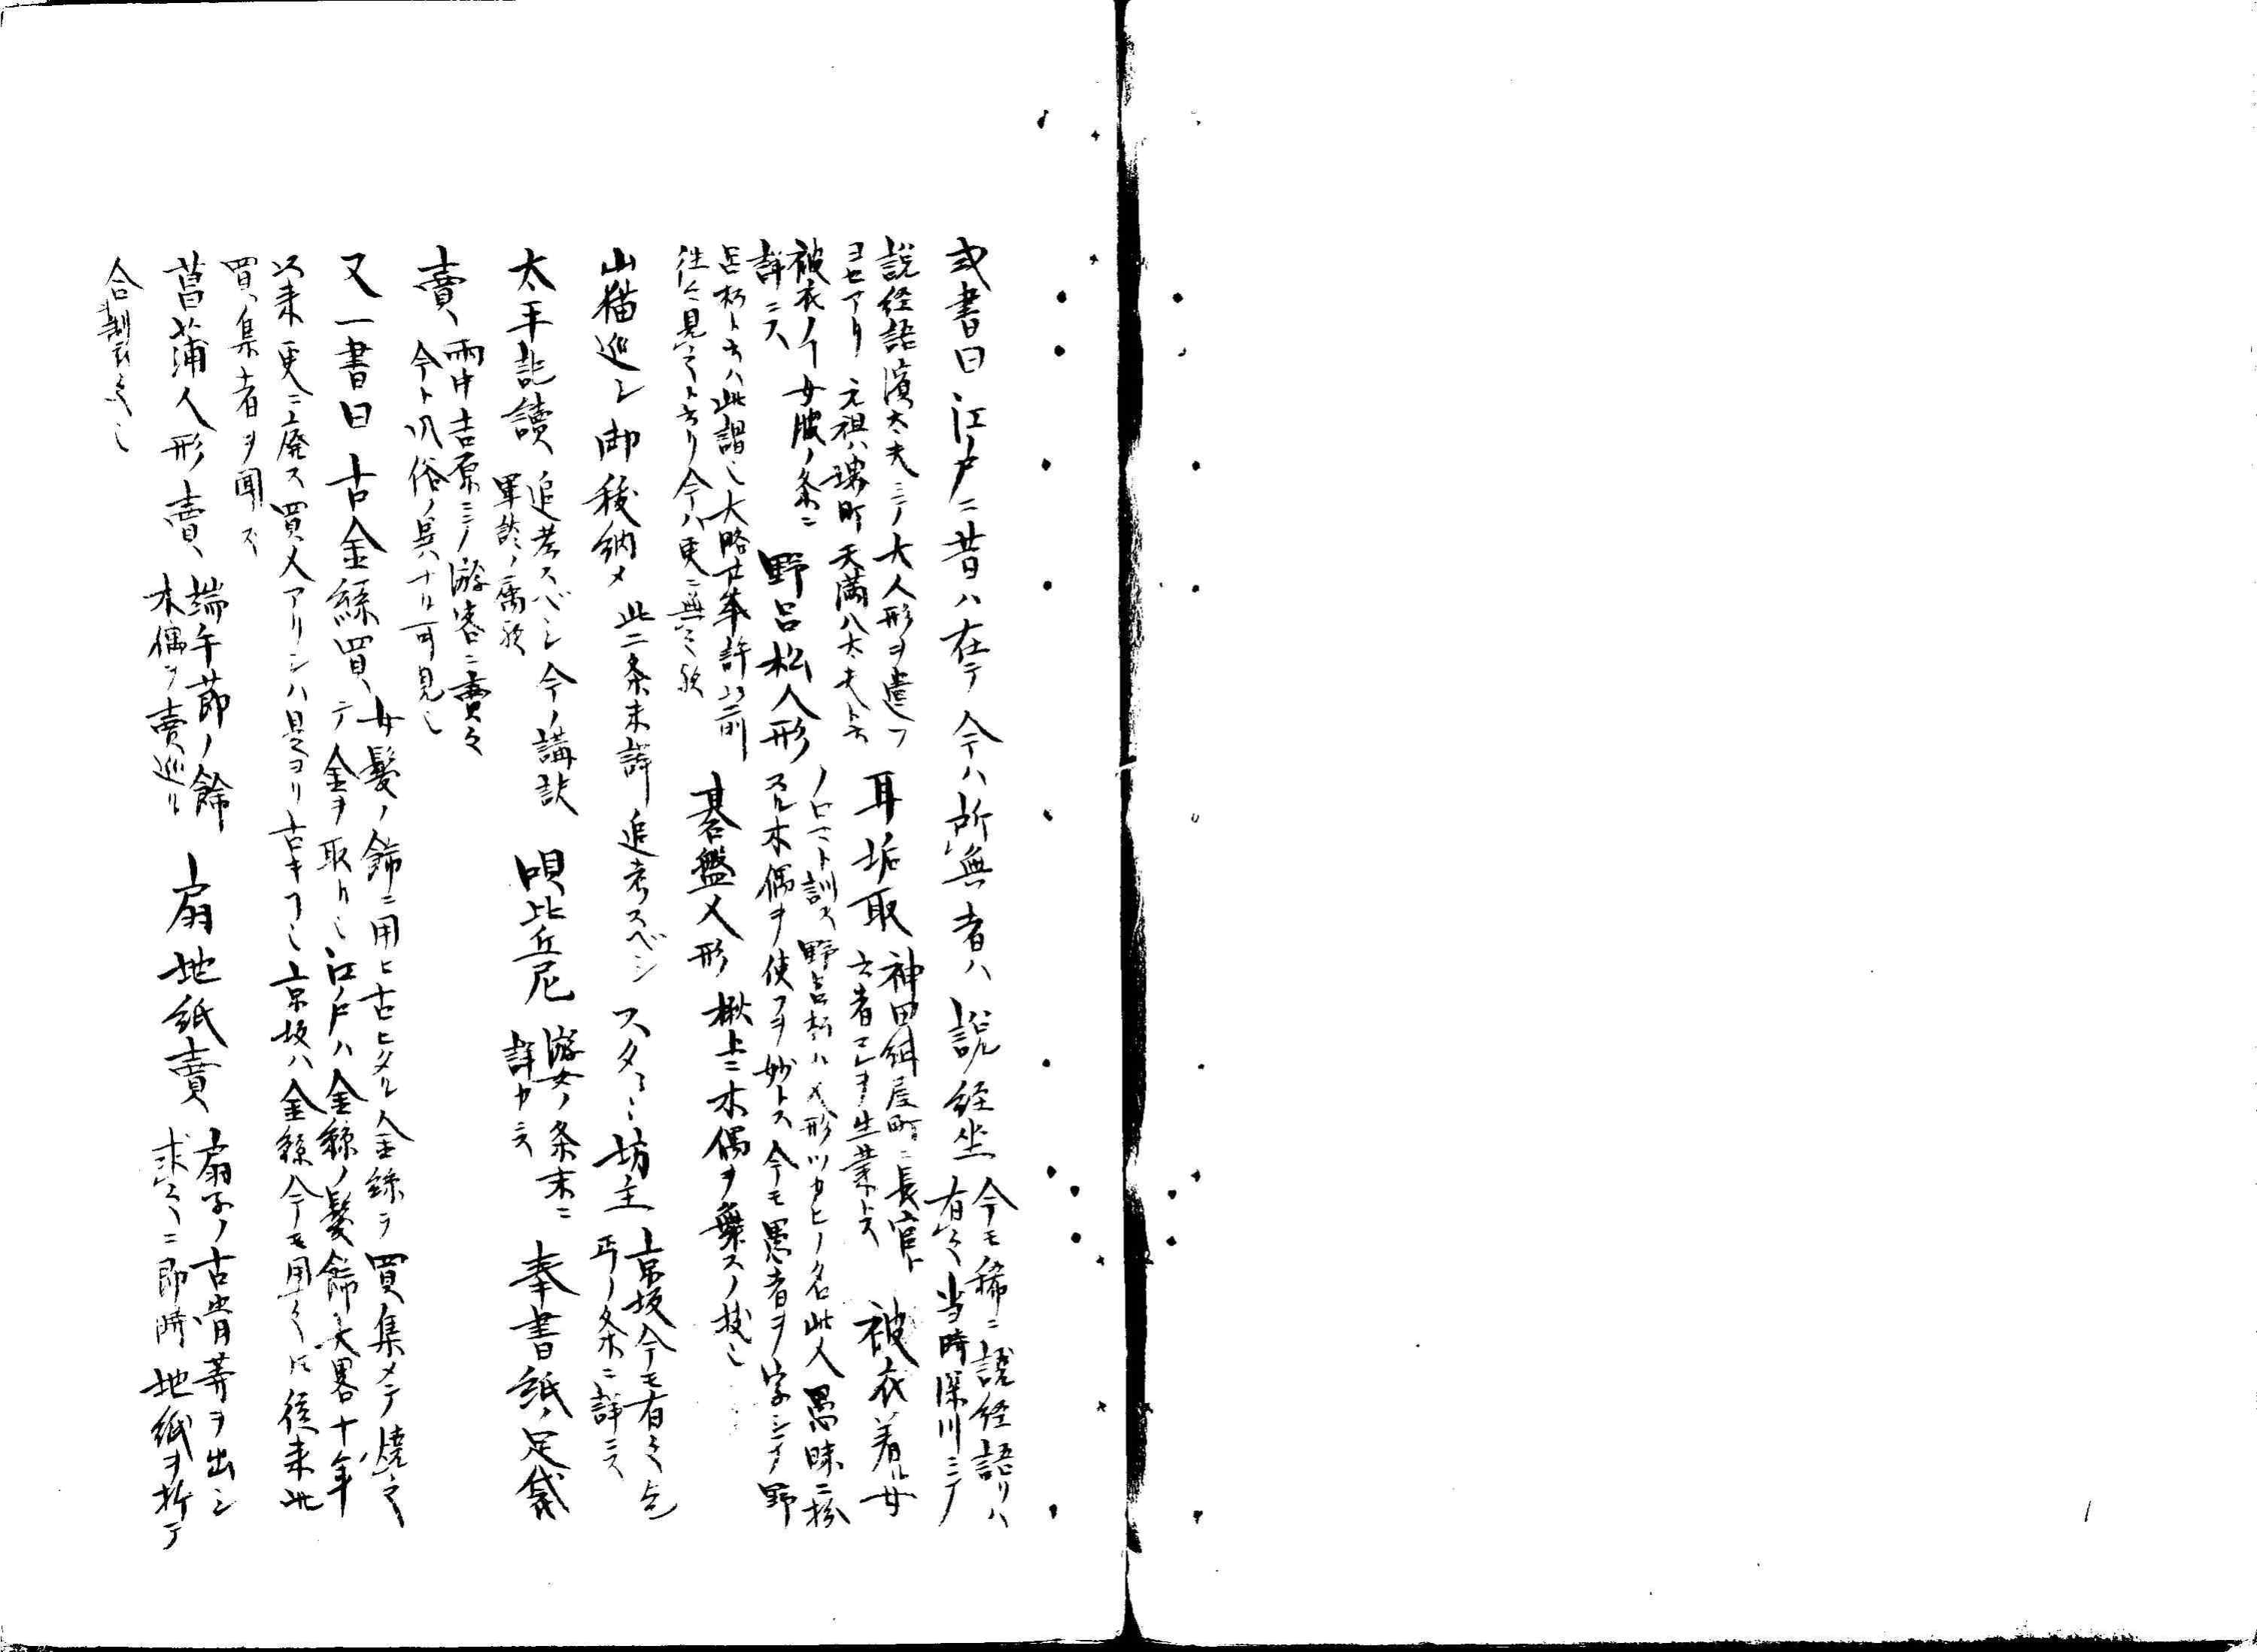 或書曰江戸ニ昔ハ在テ今ハ所無者ハ説経坐
今モ稀ニ説経語リハ
有之当時深川ニテ
説経語濱太夫ニテ大人形ヲ遣フ
ヨセアリ元祖ハ堺町天満八太夫ト云
耳垢取
神田紺屋町ニ長官ト
云者コレヲ生業トス
被衣着女
被衣ノ女服ノ条ニ
詳ニス
野呂松人形
ノロマト訓ス野呂松ハ人形ツカヒノ名此人愚昧ニ扮
スル木偶ヲ使フヲ妙トス今モ愚者ヲ字シテ野
呂松ト云ハ此謂也大略廿年許以前
往々見之ト云リ今ハ更ニ無之歟
碁盤人形
楸上ニ木偶ヲ舞スノ技也
山猫巡シ御秡納メ
此二条未詳追考スベシ
スタスタ坊主
京坂今モ有之乞
丐ノ条ニ詳ニス
太平記讀
追考スベシ今ノ講談
軍談ノ属歟
唄比丘尼
游女ノ条末ニ
詳カニス
奉書紙ノ足袋
賣
雨中吉原ニテ游客ニ賣之
今ト風俗ノ異ナル可見也
又一書曰古金絲買
女髪ノ飾ニ用ヒ古ヒタル金絲ヲ買集メテ焼之
テ金ヲ取リシ江戸ハ金絲ノ髪飾大畧十年
以来更ニ廃ス買人アリシハ是ヨリ古キコト也京坂ハ金絲今モ用之トモ従来此
買集者ヲ聞ズ
菖蒲人形賣
端午節ノ餝
木偶ヲ賣巡ル
扇地紙賣
扇子ノ古骨等ヲ出シ
求之ニ即時地紙ヲ折テ
合製之也